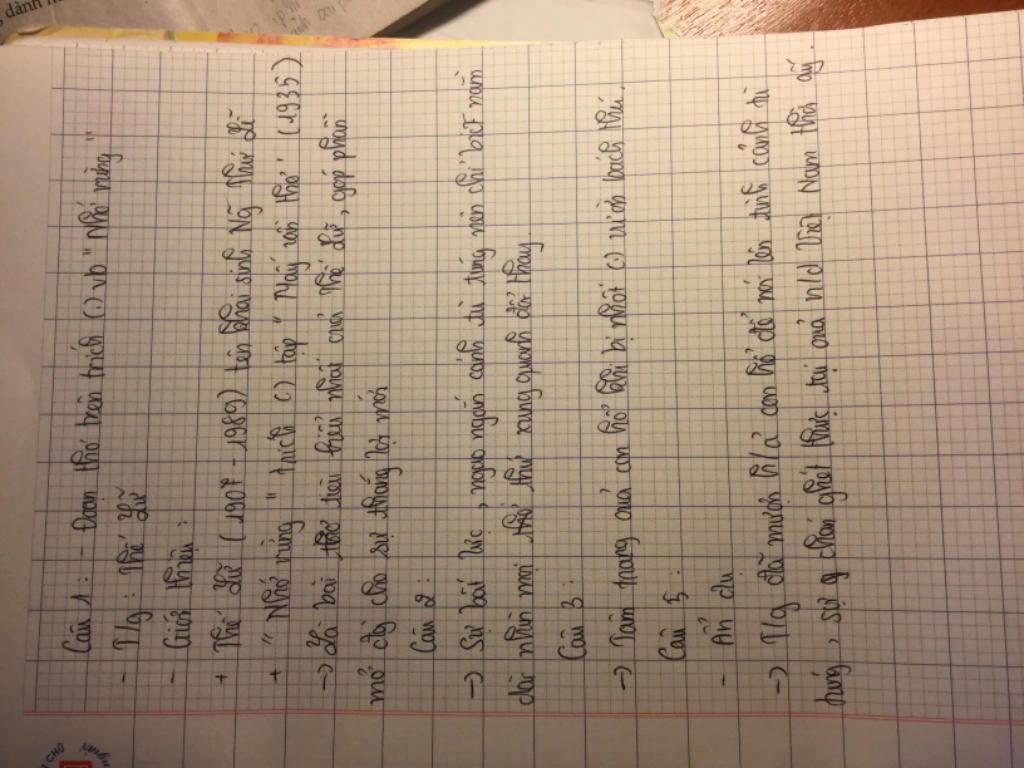 Câu 1: - Đoạn thơ bản trích (.) vb " Nhớ rừng "
- T/g : Thế Lữ
- Giới thiệu :
+ Thế Lữ ( 1907 - 1989) tên khai sinh Ng̃ Thứ Lễ
+ " Nhớ rừng " trích (.) tập " Mấy vần thơ " (1935)
-> Là bài thơ tiêu biểu nhất của Thế Lữ , góp phần
mở đg cho sự thắng lợi mới
Câu 2 :
-> Sự bất lực , ngao ngán cảnh tù túng nên chỉ biết nằm
dài nhìn mọi thứ xung quanh đổi thay.
Câu 3 :
-> Tâm trạng của con hổ khi bị nhốt (.) vườn bách thú.
Câu 5 :
- Ẩn dụ
-> T/g đã mượn h/ả con hổ để nói lên tình cảnh tù
túng , sự chán ghét thực tại của n/d Việt Nam thời ấy.
CHO